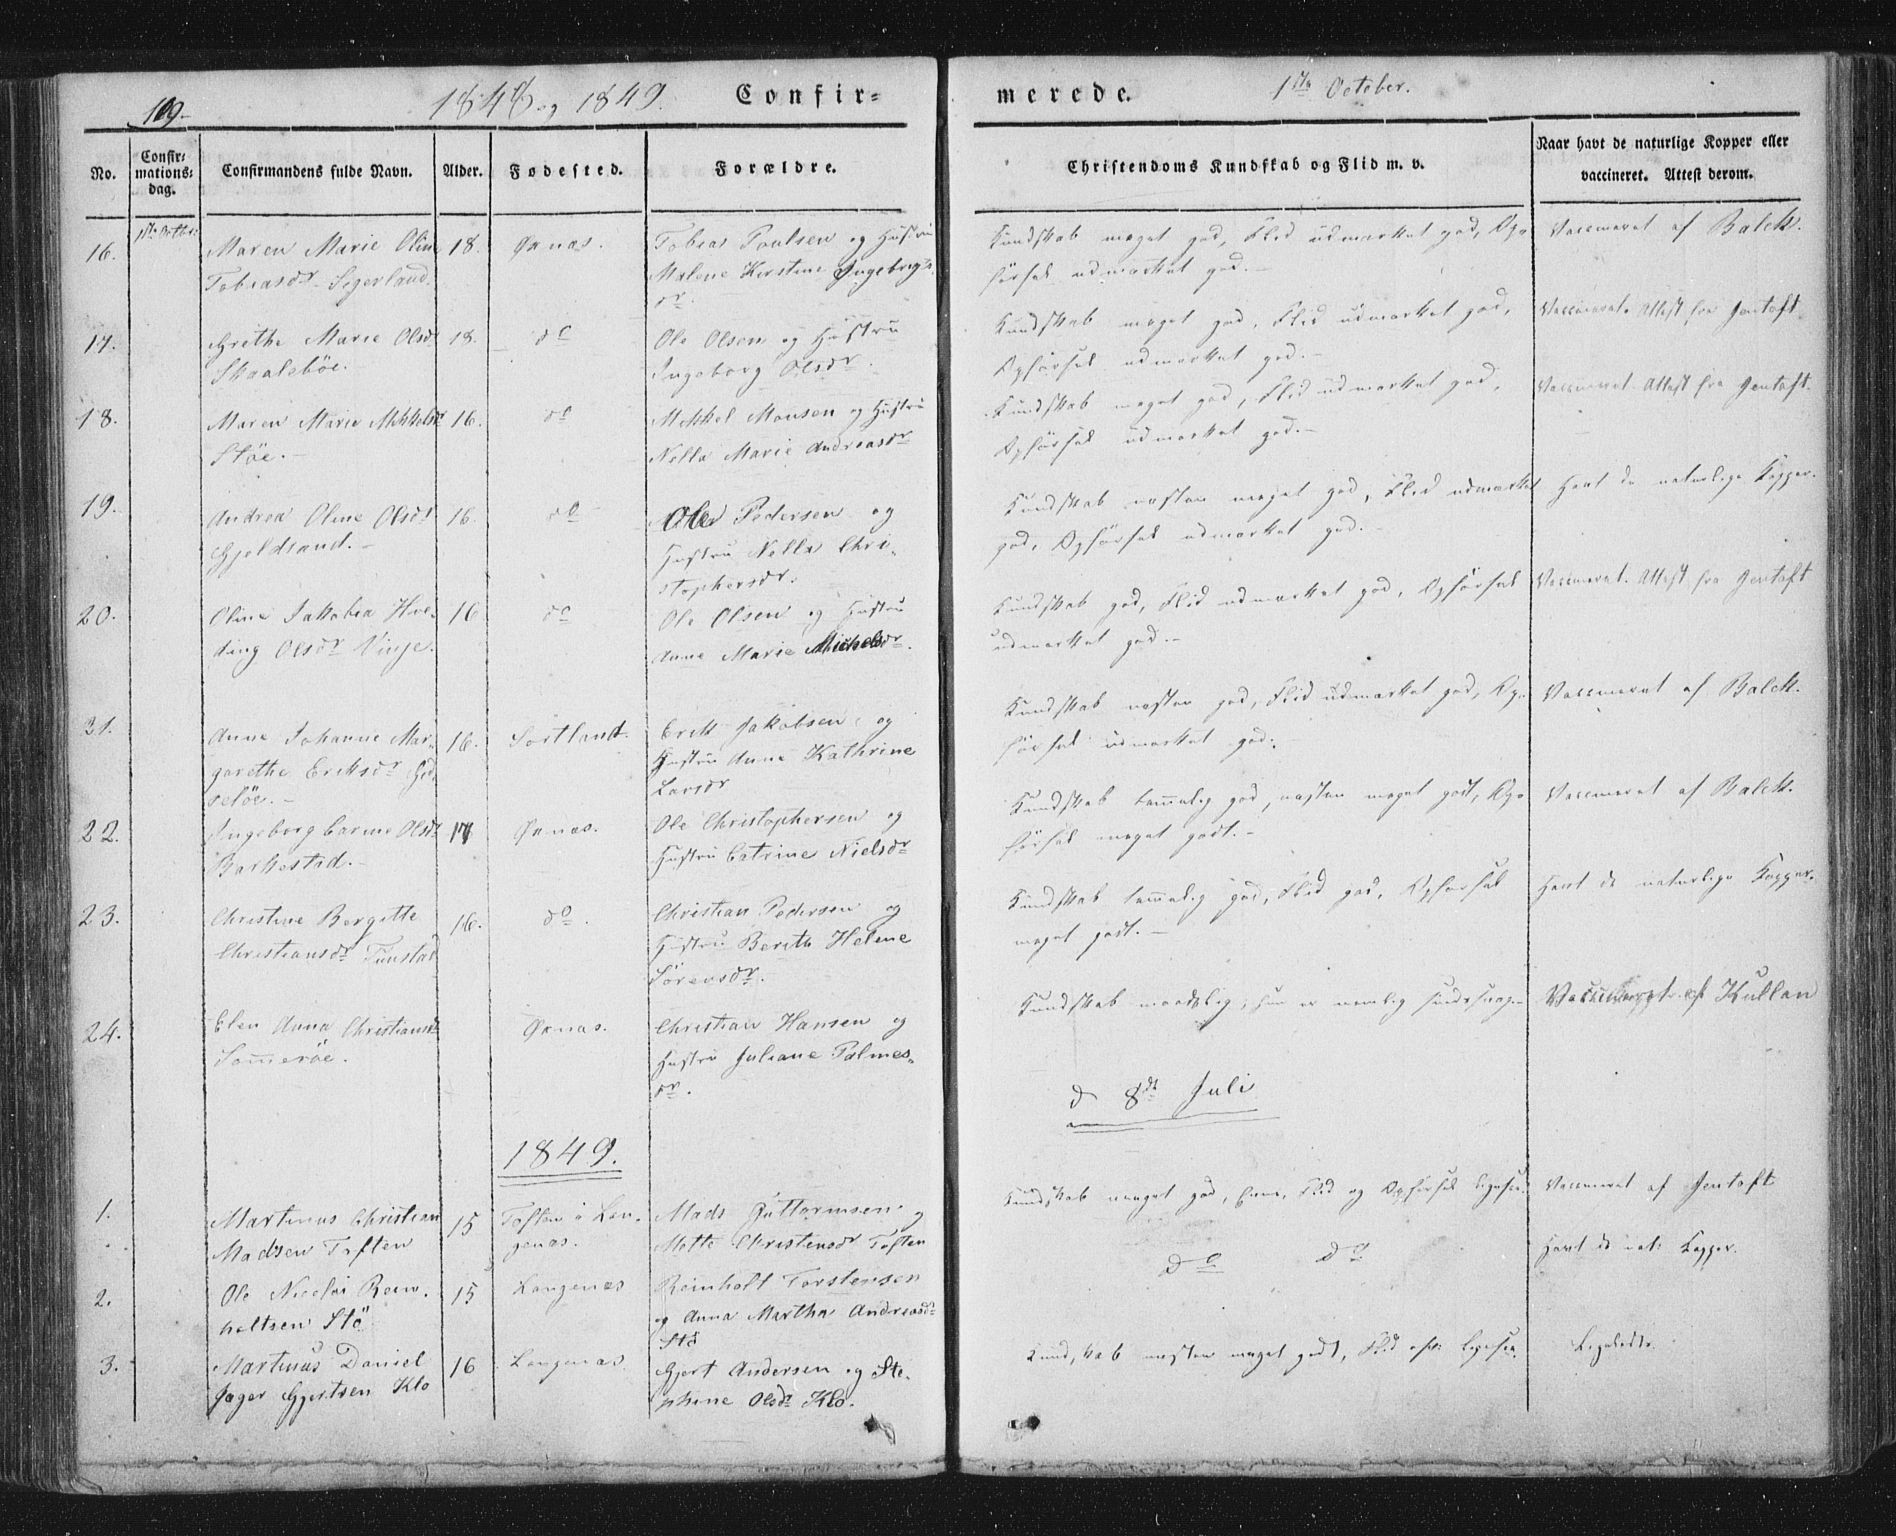 109.
1848 og 1849.
Confir-
merede.
1ste October.
No.
Confir-
mations-
dag.
Confirmandens fulde Navn.
Alder.
Fødested.
Forældre.
Christendoms Kundskab og Flid m. v.
Naar havt de naturlige Kopper eller
vaccineret. Attest derom.
16.
1ste Octbr:
Maren Marie Oline
Tobiasdr Sigerland.
18.
Øxnæs.
Tobias Poulsen og Hustru
Malene Kirstine Ingebrigts
dr.
Kundskab meget god, Flid udmærket god, Op-
førsel udmærket god.-
Vaccineret af Balck.
17.
Grethe Marie Olsdr
Skaaleböe.
18.
do
Ole Olsen og Hustru
Ingeborg Olsdr.
Kundskab meget god, Flid udmærket god,
Opførsel udmærket god.-
Vaccineret. Attest fra Jentoft.
18.
Maren Marie Mikkelsdr
Stöe.-
16.
do
Mikkel Monsen og Hustru
Nella Marie Andreasdr
Kundskab meget god, Flid udmærket god,
Opførsel udmærket god.-
Vaccineret. Attest fra Jentoft.
19.
Andrea Oline Olsdr
Gjeldsand.-
16.
do
Ole Pedersen og
Hustru Nella Chri-
stophersdr.
Kundskab næsten meget god, Flid udmærket
god, Opførsel udmærket god.-
Havt de naturlige Kopper.
20.
Oline Jakobia Hve-
ding Olsdr Vinje.
16
do
Ole Olsen og Hustru
Anne Marie Michelsdr.
Kundskab god, Flid udmærket god, Opførsel
udmærket god.-
Vaccineret. Attest fra Jentoft
21.
Anne Johanne Mar-
garethe Eriksdr Gid-
selöe.-
16.
Sortland.
Erik Jakobsen og
Hustru Anne Kathrine
Larsdr
Kundskab næsten god, Flid udmærket god, Op-
førsel udmærket god.
Vaccineret af Balck.
22.
Ingeborg Carine Olsdr
Barkestad.-
17
Øxnæs.
Ole Christophersen og
Hustru Catrine Nielsdr
Kundskab temmelig god, næsten meget godt, Op-
førsel meget godt.-
Vaccineret af Balck.
23.
Christine Bergitte
Christiansdr Tunstad
16.
do.
Christian Pedersen og
Hustru Berith Helene
Sörensdr.
Kundskab temmelig god, Flid god, Opførsel
meget godt.-
Havt de naturlige Kopper.
24.
Elen Anna Christiansdr
Sommeröe.
Øxnæs.
Christian Hansen og
Hustru Juliane Palmes-
dr.
Kundskab maadelig, hun er nemlig
Vaccineret af Kullan
1849.
d 8de Juli
1.
Martinus Christian
Madsen Toften
15
Toften i Lan-
genæs.
Mads Guttormsen og
Mette Christensdr Toften
Kundskab meget god, Evne, Flid og Opførsel ligesaa.
Vaccineret af Jentoft
2.
Ole Nicolai Rein-
holtsen Stö
15
Langenæs
Reinholt Torstensen
og Anna Martha Andreasdr
Stö
Do Do
Havt de nat: Kopper.
3.
Martinus Daniel
Jæger Gjertsen Klo
16
Langenæs.
Gjert Andersen og Ste-
phine Olsdr Klo.
Kundskab næsten meget godt, Flid ligesaa.
Ligeledes